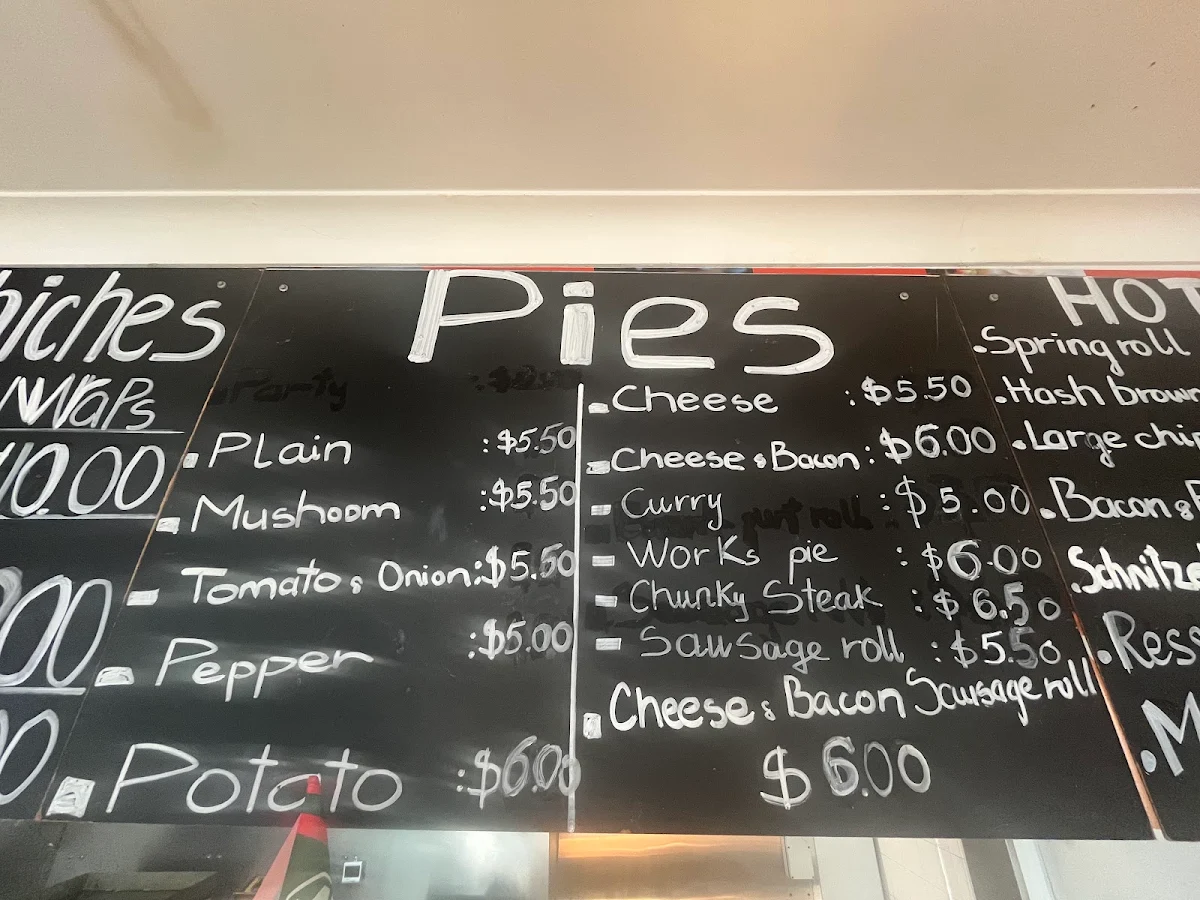 Pies
Plain :$5.50
Mushoom :$5.50
Tomato & Onion:$5.50
Pepper :$5.00
Potato :$6.00
Cheese :$5.50
Cheese & Bacon :$6.00
Curry :$5.00
Works pie :$6.00
Chunky Steak :$6.50
Sausage roll :$5.50
Cheese & Bacon Sausage roll
$6.00
WraPs
10.00
HOT
Spring roll
Hash brown
Large chip
Bacon &